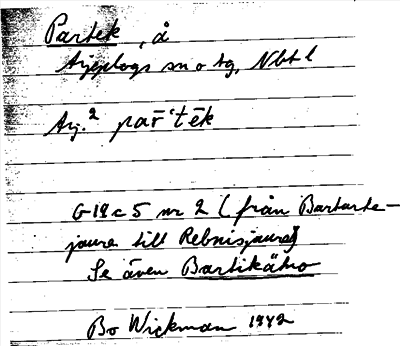 Partek, å
Arjeplogs sn o tg, Nbtl
Arj.² pař̄'tēk
G19c5 nr 2 (från Bartarte-
jaure till Rebnisjaure)
Se även Bartikätno
Bo Wickman 1942